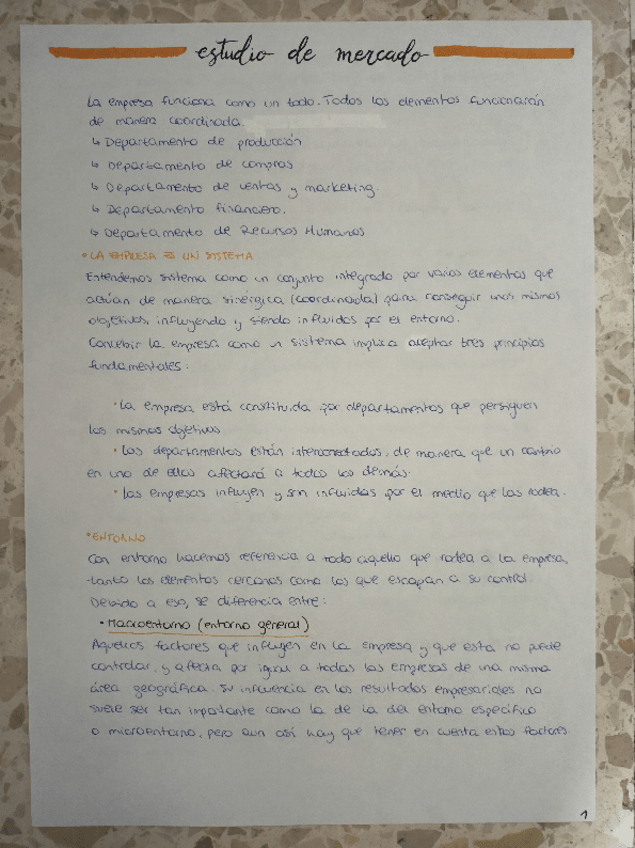 estudio de mercado
La empresa funciona como un todo. Todos los elementos funcionarán
de manera coordinada.
↳ Departamento de producción
↳ Departamento de compras
↳ Departamento de ventas y marketing.
↳ Departamento financiero.
↳ Departamento de Recursos Humanos
• LA EMPRESA ES UN SISTEMA
Entendemos sistema como un conjunto integrado por varios elementos que
actúan de manera sinérgica (coordinada) para conseguir unos mismos
objetivos, influyendo y siendo influidos por el entorno.
Concebir la empresa como un sistema implica aceptar tres principios
fundamentales:
• La empresa está constituida por departamentos que persiguen
los mismos objetivos
• Los departamentos están interconectados, de manera que un cambio
en uno de ellos afectará a todos los demás.
• Las empresas influyen y son influidas por el medio que las rodea.
• ENTORNO
Con entorno hacemos referencia a todo aquello que rodea a la empresa,
tanto los elementos cercanos como los que escapan a su control.
Debido a eso, se diferencia entre:
• Macroentorno (entorno general)
Aquellos factores que influyen en la empresa y que esta no puede
controlar, y afecta por igual a todas las empresas de una misma
área geográfica. Su influencia en los resultados empresariales no
suele ser tan importante como la de la del entorno específico
o microentorno, pero aun así hay que tener en cuenta estos factores.
1